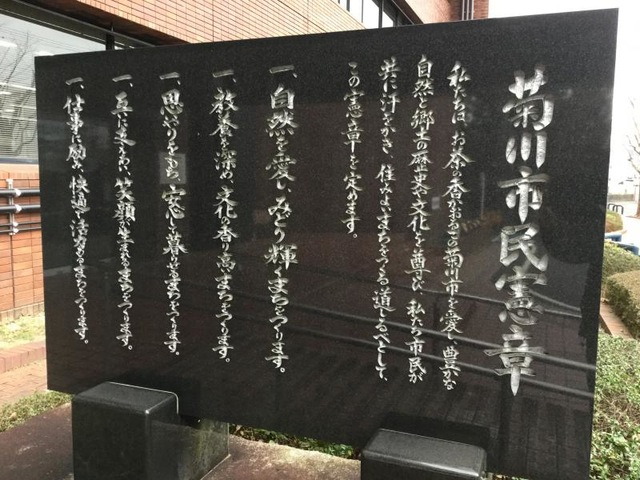 菊川市民憲章
私たちは、お茶の香かおるこの菊川市を愛し、豊かな
自然と郷土の歴史・文化を尊び、私たち市民が
共に汗をかき、住みよいまちをつくる道しるべとして、
この憲章を定めます。
一、自然を愛し、みどり輝くまちをつくります。
一、教養を深め、文化の香り高いまちをつくります。
一、思いやりをもち、安心して暮らせるまちをつくります。
一、互いに支えあい、笑顔が生まれるまちをつくります。
一、仕事に励み、快適で活力あるまちをつくります。